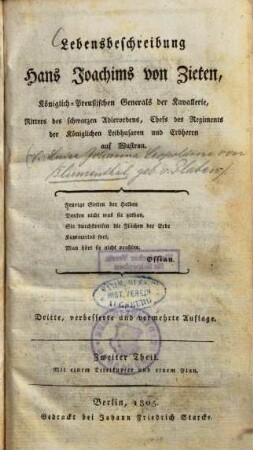 Lebensbeschreibung
Hans Joachims von Zieten,
Königlich-Preußischen Generals der Kavallerie,
Ritters des schwarzen Adlerordens, Chefs des Regiments
der Königlichen Leibhusaren und Erbherrn
auf Wustrau.
Johanna Leopoldine von
Blumenthal, geb. v. Platen
Feurige Seelen der Helden
Denken nicht was sie gethan,
Sie durchstreifen die Flächen der Erde
Kummerlos fort,
Man hört sie nicht prahlen.
Ossian.
Dritte, verbesserte und vermehrte Auflage.
Zweiter Theil.
Mit einem Titelkupfer und einem Plan.
Berlin, 1805.
Gedruckt bei Johann Friedrich Starcke.